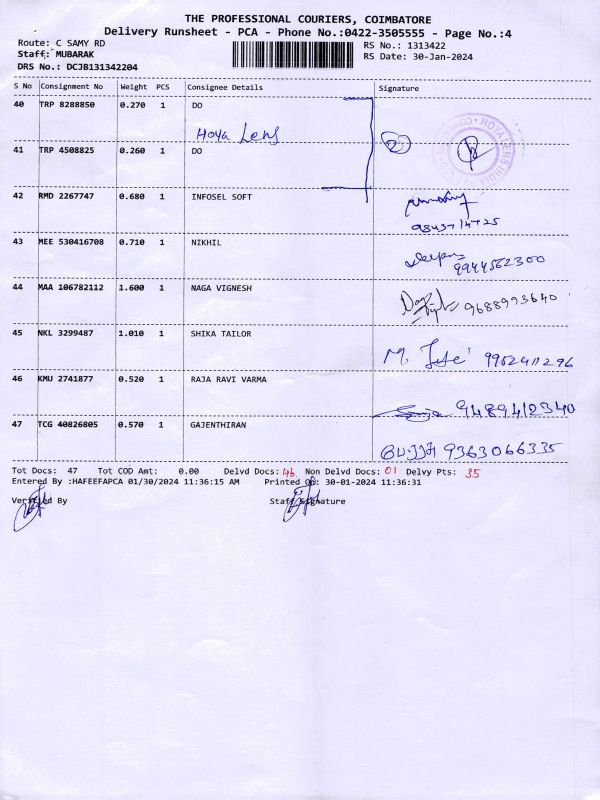 THE PROFESSIONAL COURIERS, COIMBATORE
Delivery Runsheet - PCA - Phone No.:0422-3505555 - Page No.:4
Route: C SAMY RD
RS No.: 1313422
Staff: MUBARAK
RS Date: 30-Jan-2024
DRS No.: DCJB131342204
S No Consignment No Weight PCS Consignee Details Signature
40 TRP 8288850 0.270 1 DO
Hoya Lens
2
41 TRP 4508825 0.260 1 DO
42 RMD 2267747 0.680 1 INFOSEL SOFT
43 MEE 530416708 0.710 1 NIKHIL
9944562300
44 MAA 106782112 1.600 1 NAGA VIGNESH
9688993640
45 NKL 3299487 1.010 1 SHIKA TAILOR
M. 9952411296
46 KMU 2741877 0.520 1 RAJA RAVI VARMA
9489412340
47 TCG 40826805 0.570 1 GAJENTHIRAN
9363066335
Tot Docs: 47 Tot COD Amt: 0.00 Delvd Docs: 46 Non Delvd Docs: 01 Delvy Pts: 35
Entered By :HAFEEFAPCA 01/30/2024 11:36:15 AM Printed On: 30-01-2024 11:36:31
Verified By Staff Signature